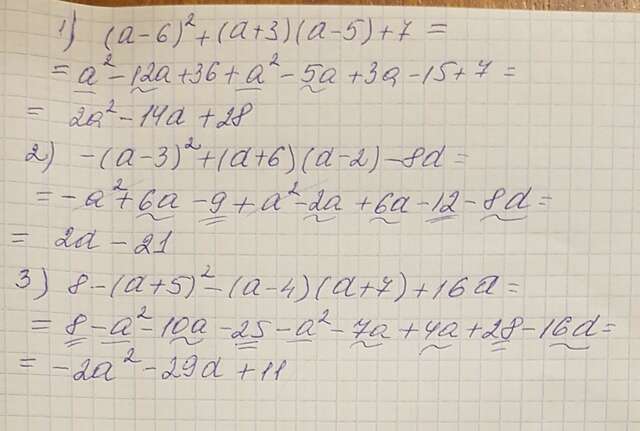 1) (a-6)²+(a+3)(a-5)+7=
=a²-12a+36+a²-5a+3a-15+7=
= 2a²-14a+28
2) -(a-3)²+(a+6)(a-2)-8a=
=-a²+6a-9+a²-2a+6a-12-8a=
= 2a-21
3) 8-(a+5)²-(a-4)(a+7)+16a=
=8-a²-10a-25-a²-7a+4a+28-16a=
=-2a²-29a+11